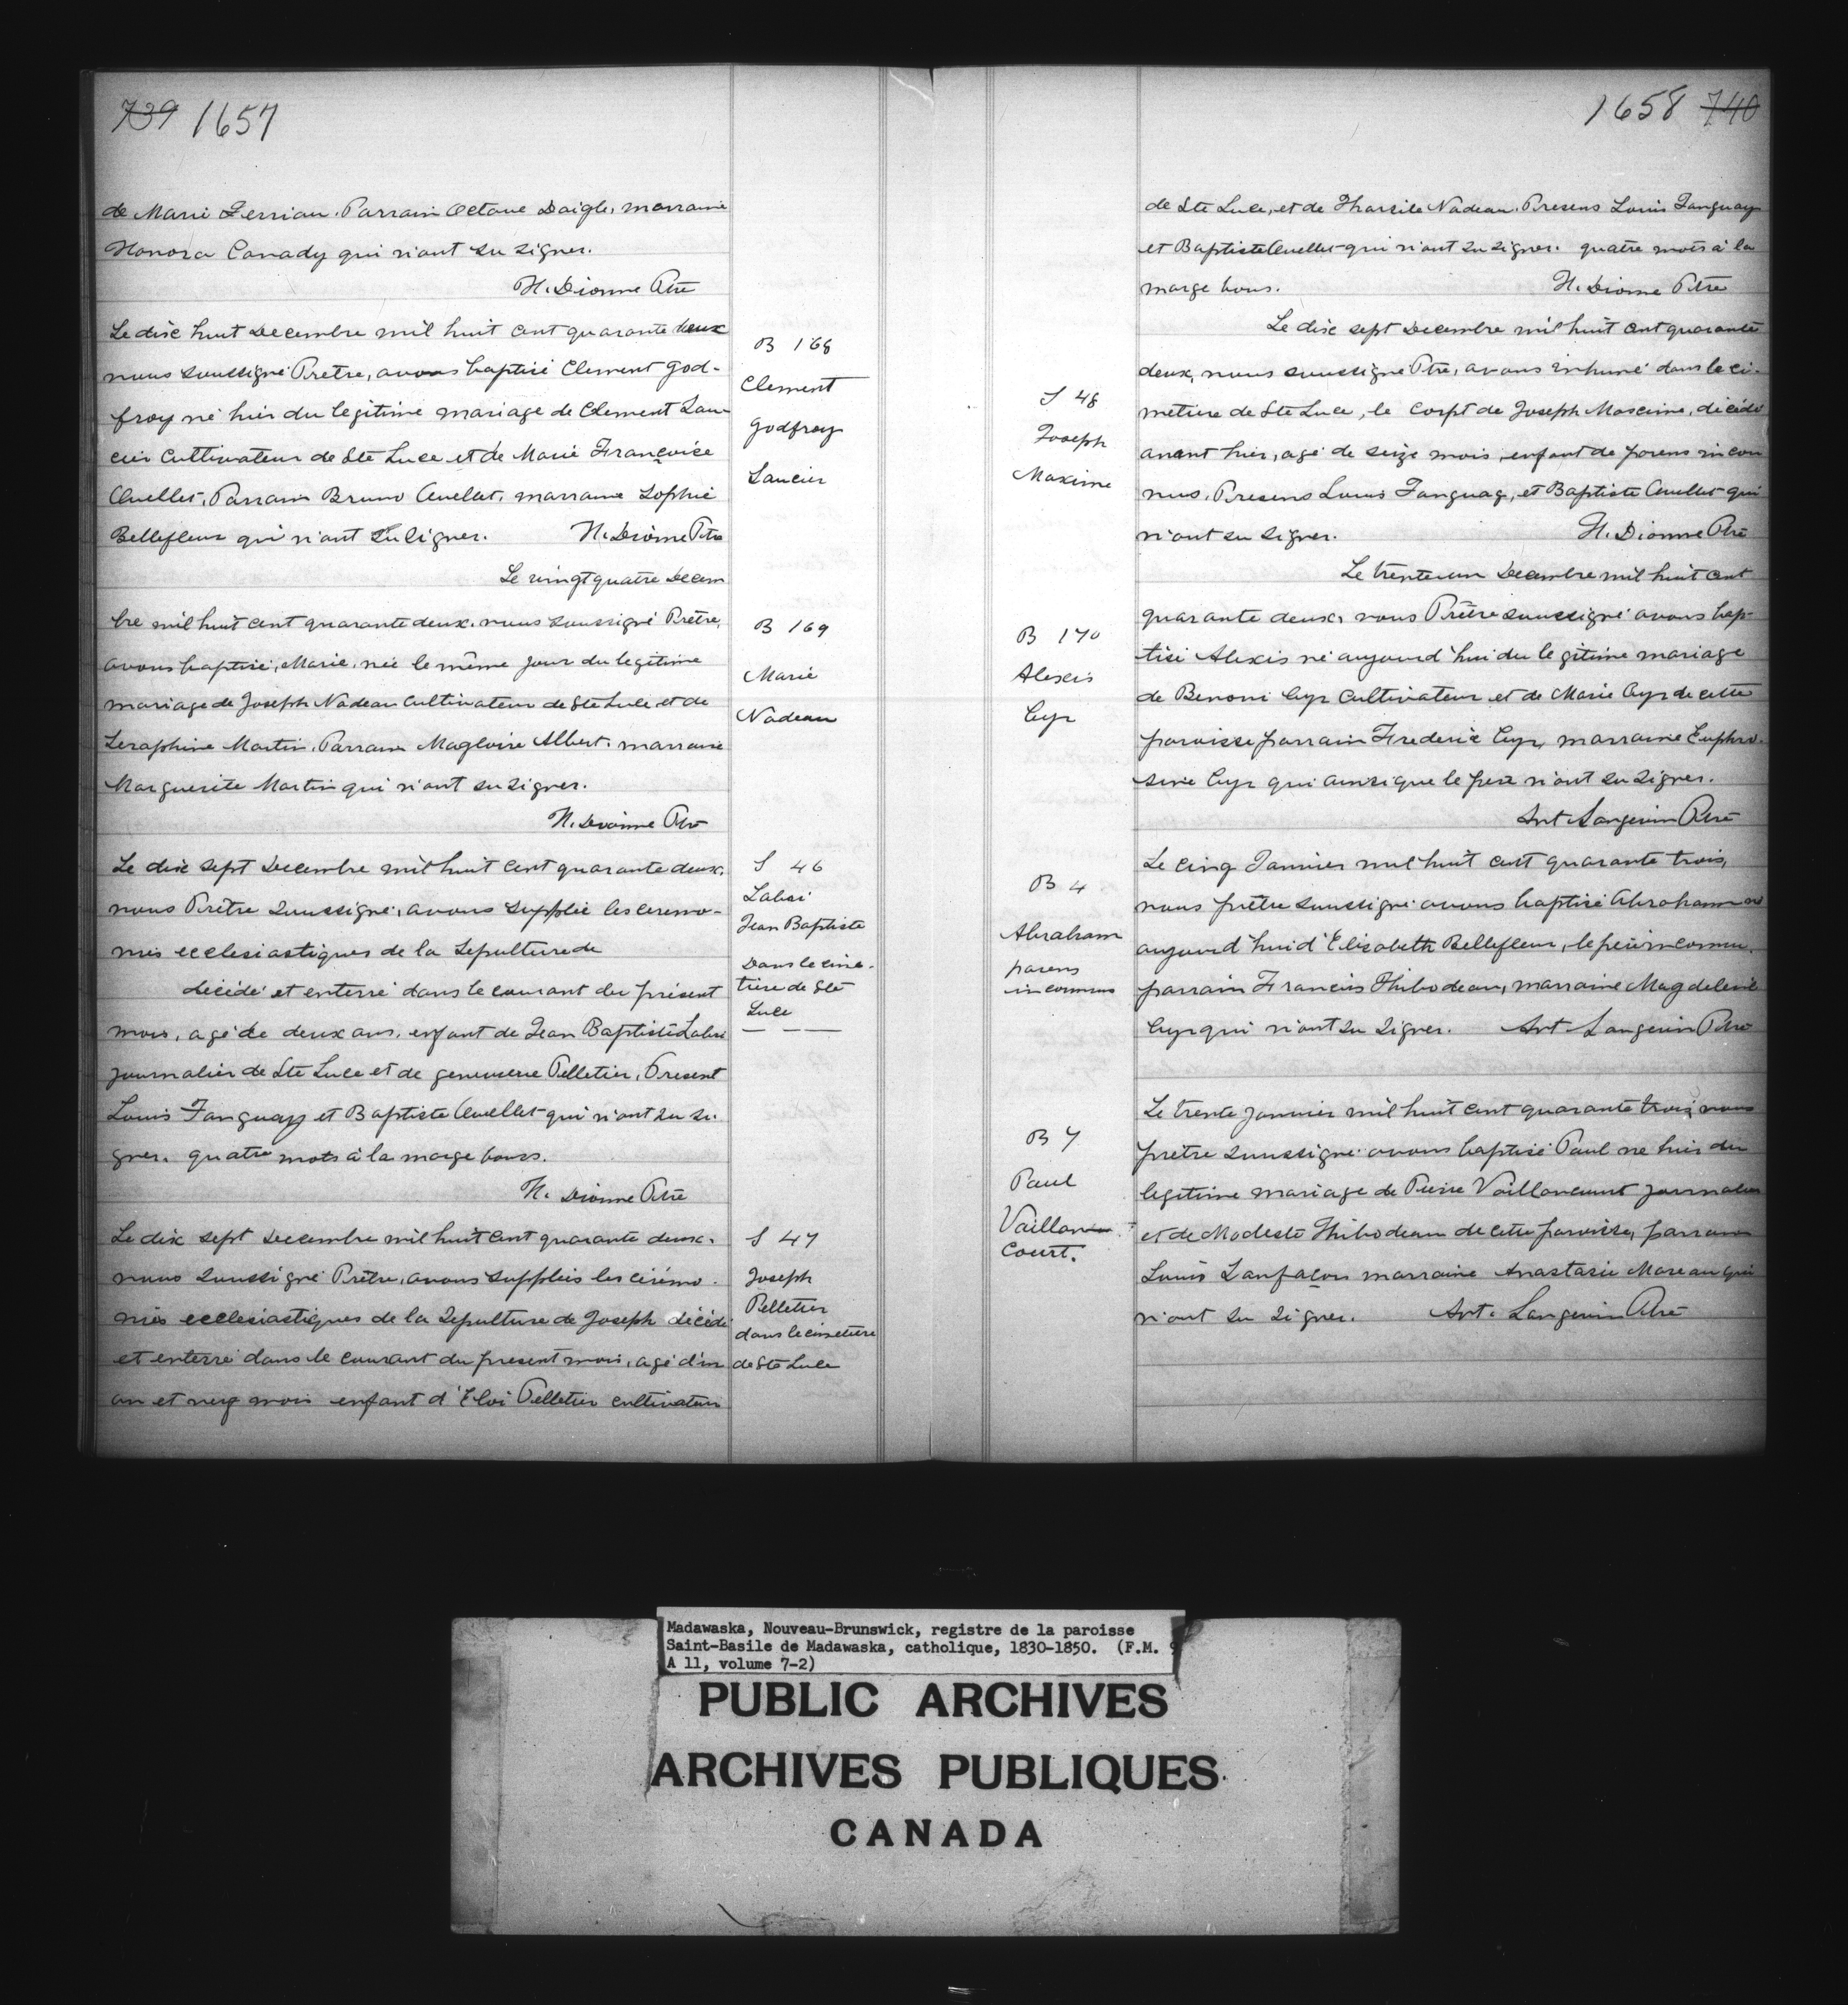 739 1657
de Marie Terriau. Parrain Octave Daigle, marraine
Honora Canady qui n'ont su signer.
H. Dionne Ptre
Le dix huit Decembre mil huit cent quarante deux
nous soussigné Pretre, avons baptisé Clement God-
froy né hier du legitime mariage de Clement Lan
cier Cultivateur de Ste Luce et de Marie Françoise
Ouellet, Parrain Bruno Ouellet, marraine Sophie
Bellefleur qui n'ont su signer. H. Dionne Ptre
B 168
Clement
Godfroy
Lancier
Le vingt quatre Decem
bre mil huit cent quarante deux, nous soussigné Prêtre,
avons baptisé, Marie, née le même jour du legitime
mariage de Joseph Nadeau Cultivateur de Ste Luce et de
Seraphine Martin. Parrain Magloire Albert, marraine
Marguerite Martin qui n'ont su signer.
H. Dionne Ptre
B 169
Marie
Nadeau
Le dix sept Decembre mil huit cent quarante deux,
nous Prêtre soussigné, avons supplée les ceremo-
nies ecclesiastiques de la Sepulture de
décédé et enterré dans le courant du présent
mois, agé de deux ans, enfant de Jean Baptiste Labrie
journalier de Ste Luce et de genevieve Pelletier, Present
Louis Tanguay et Baptiste Ouellet qui n'ont su si-
gner. quatre mots à la marge bons.
H. Dionne Ptre
S 46
Labri
Jean Baptiste
Dans le cime-
tiere de Ste
Luce
Le dix sept Decembre mil huit cent quarante deux,
nous soussigné Prêtre, avons supplées les cérémo-
nies ecclesiastiques de la Sepulture de Joseph décédé
et enterré dans le courant du present mois, agé d'un
an et neuf mois enfant d'Eloi Pelletier cultivateur
S 47
Joseph
Pelletier
dans le cimetiere
de Ste Luce
1658 740
de Ste Luce, et de Tharsile Nadeau. Presens Louis Tanguay
et Baptiste Ouellet qui n'ont su signer. quatre mots à la
marge bons. H. Dionne Ptre
Le dix sept Decembre mil huit cent quarante
deux, nous soussigné Ptre, avons inhumé dans le ci-
metiere de Ste Luce, le corpt de Joseph Maxime, décédé
avant hier, agé de seize mois, enfant de parens incon
nus. Presens Louis Tanguay, et Baptiste Ouellet qui
n'ont su signer. H. Dionne Ptre
S 48
Joseph
Maxime
Le trente un Decembre mil huit cent
quarante deux, nous Prêtre soussigné avons bap-
tisé Alexis né aujourd'hui du legitime mariage
de Benoni Cyr Cultivateur et de Marie Cyr de cette
paroisse parrain Frederic Cyr, marraine Euphro-
sine Cyr qui ainsi que le pere n'ont su signer.
Ant Langevin Ptre
B 170
Alexis
Cyr
Le cinq Janvier mil huit cent quarante trois,
nous prêtre soussigné avons baptisé Abraham né
aujourd'hui d'Elisabeth Bellefleur, le père inconnu.
parrain Francis Thibodeau, marraine Magdeleine
Cyr qui n'ont su signer. Ant Langevin Ptre
B 4
Abraham
parens
inconnus
Le trente janvier mil huit cent quarante trois, nous
prêtre soussigné avons baptisé Paul né hier du
legitime mariage de Pierre Vaillancourt journalier
et de Modeste Thibodeau de cette paroisse, parrain
Louis Lanfaçon marraine Anastasie Moreau qui
n'ont su signer. Ant. Langevin Ptre
B 7
Paul
Vaillan
Court.
Madawaska, Nouveau-Brunswick, registre de la paroisse
Saint-Basile de Madawaska, catholique, 1830-1850. (F.M. 9
A 11, volume 7-2)
PUBLIC ARCHIVES
ARCHIVES PUBLIQUES
CANADA